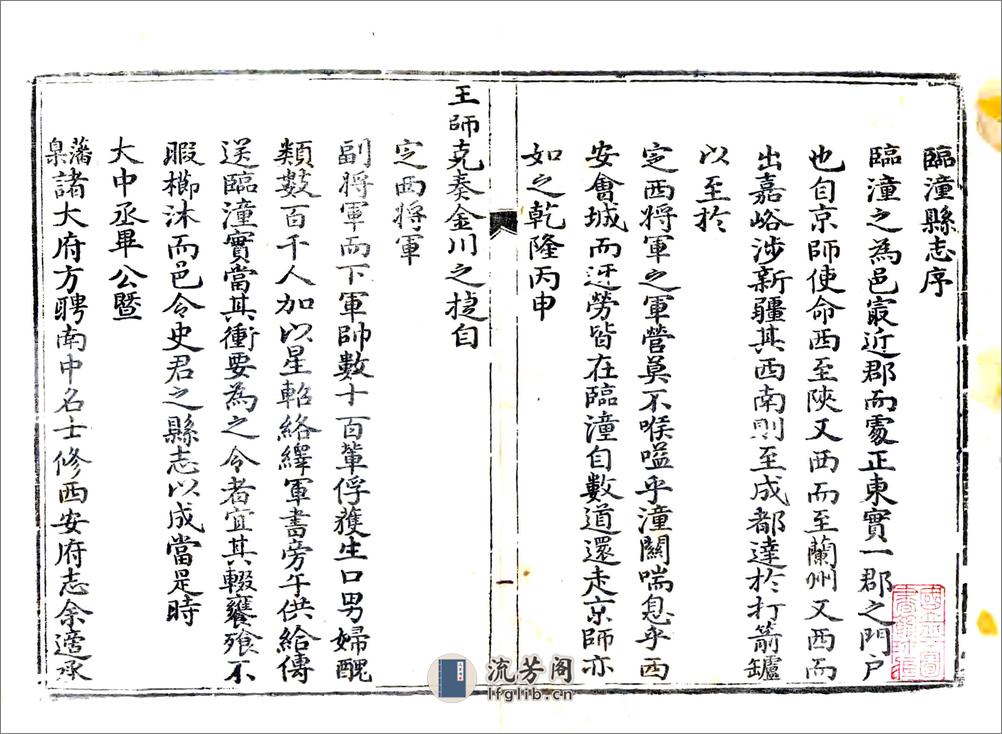 臨潼縣志序
臨潼之為邑㝡近郡而處正東實一郡之門戶
也自京師使命西至陝又西而至蘭州又西而
出嘉峪涉新疆其西南則至成都達於打箭鑪
以至於
定西將軍之軍營莫不喉嗌乎潼關喘息乎西
安會城而迓勞皆在臨潼自數道還走京師亦
如之乾隆丙申
王師克奏金川之捷自
定西將軍
副將軍而下軍帥數十百輩俘獲生口男婦醜
類數百千人加以星軺絡繹軍書旁午供給傳
送臨潼實當其衝要為之令者宜其輟饔飧不
暇櫛沐而邑令史君之縣志以成當是時
大中丞畢公暨
藩臬諸大府方聘南中名士修西安府志余適承
一
流芳阁
lfglib.cn